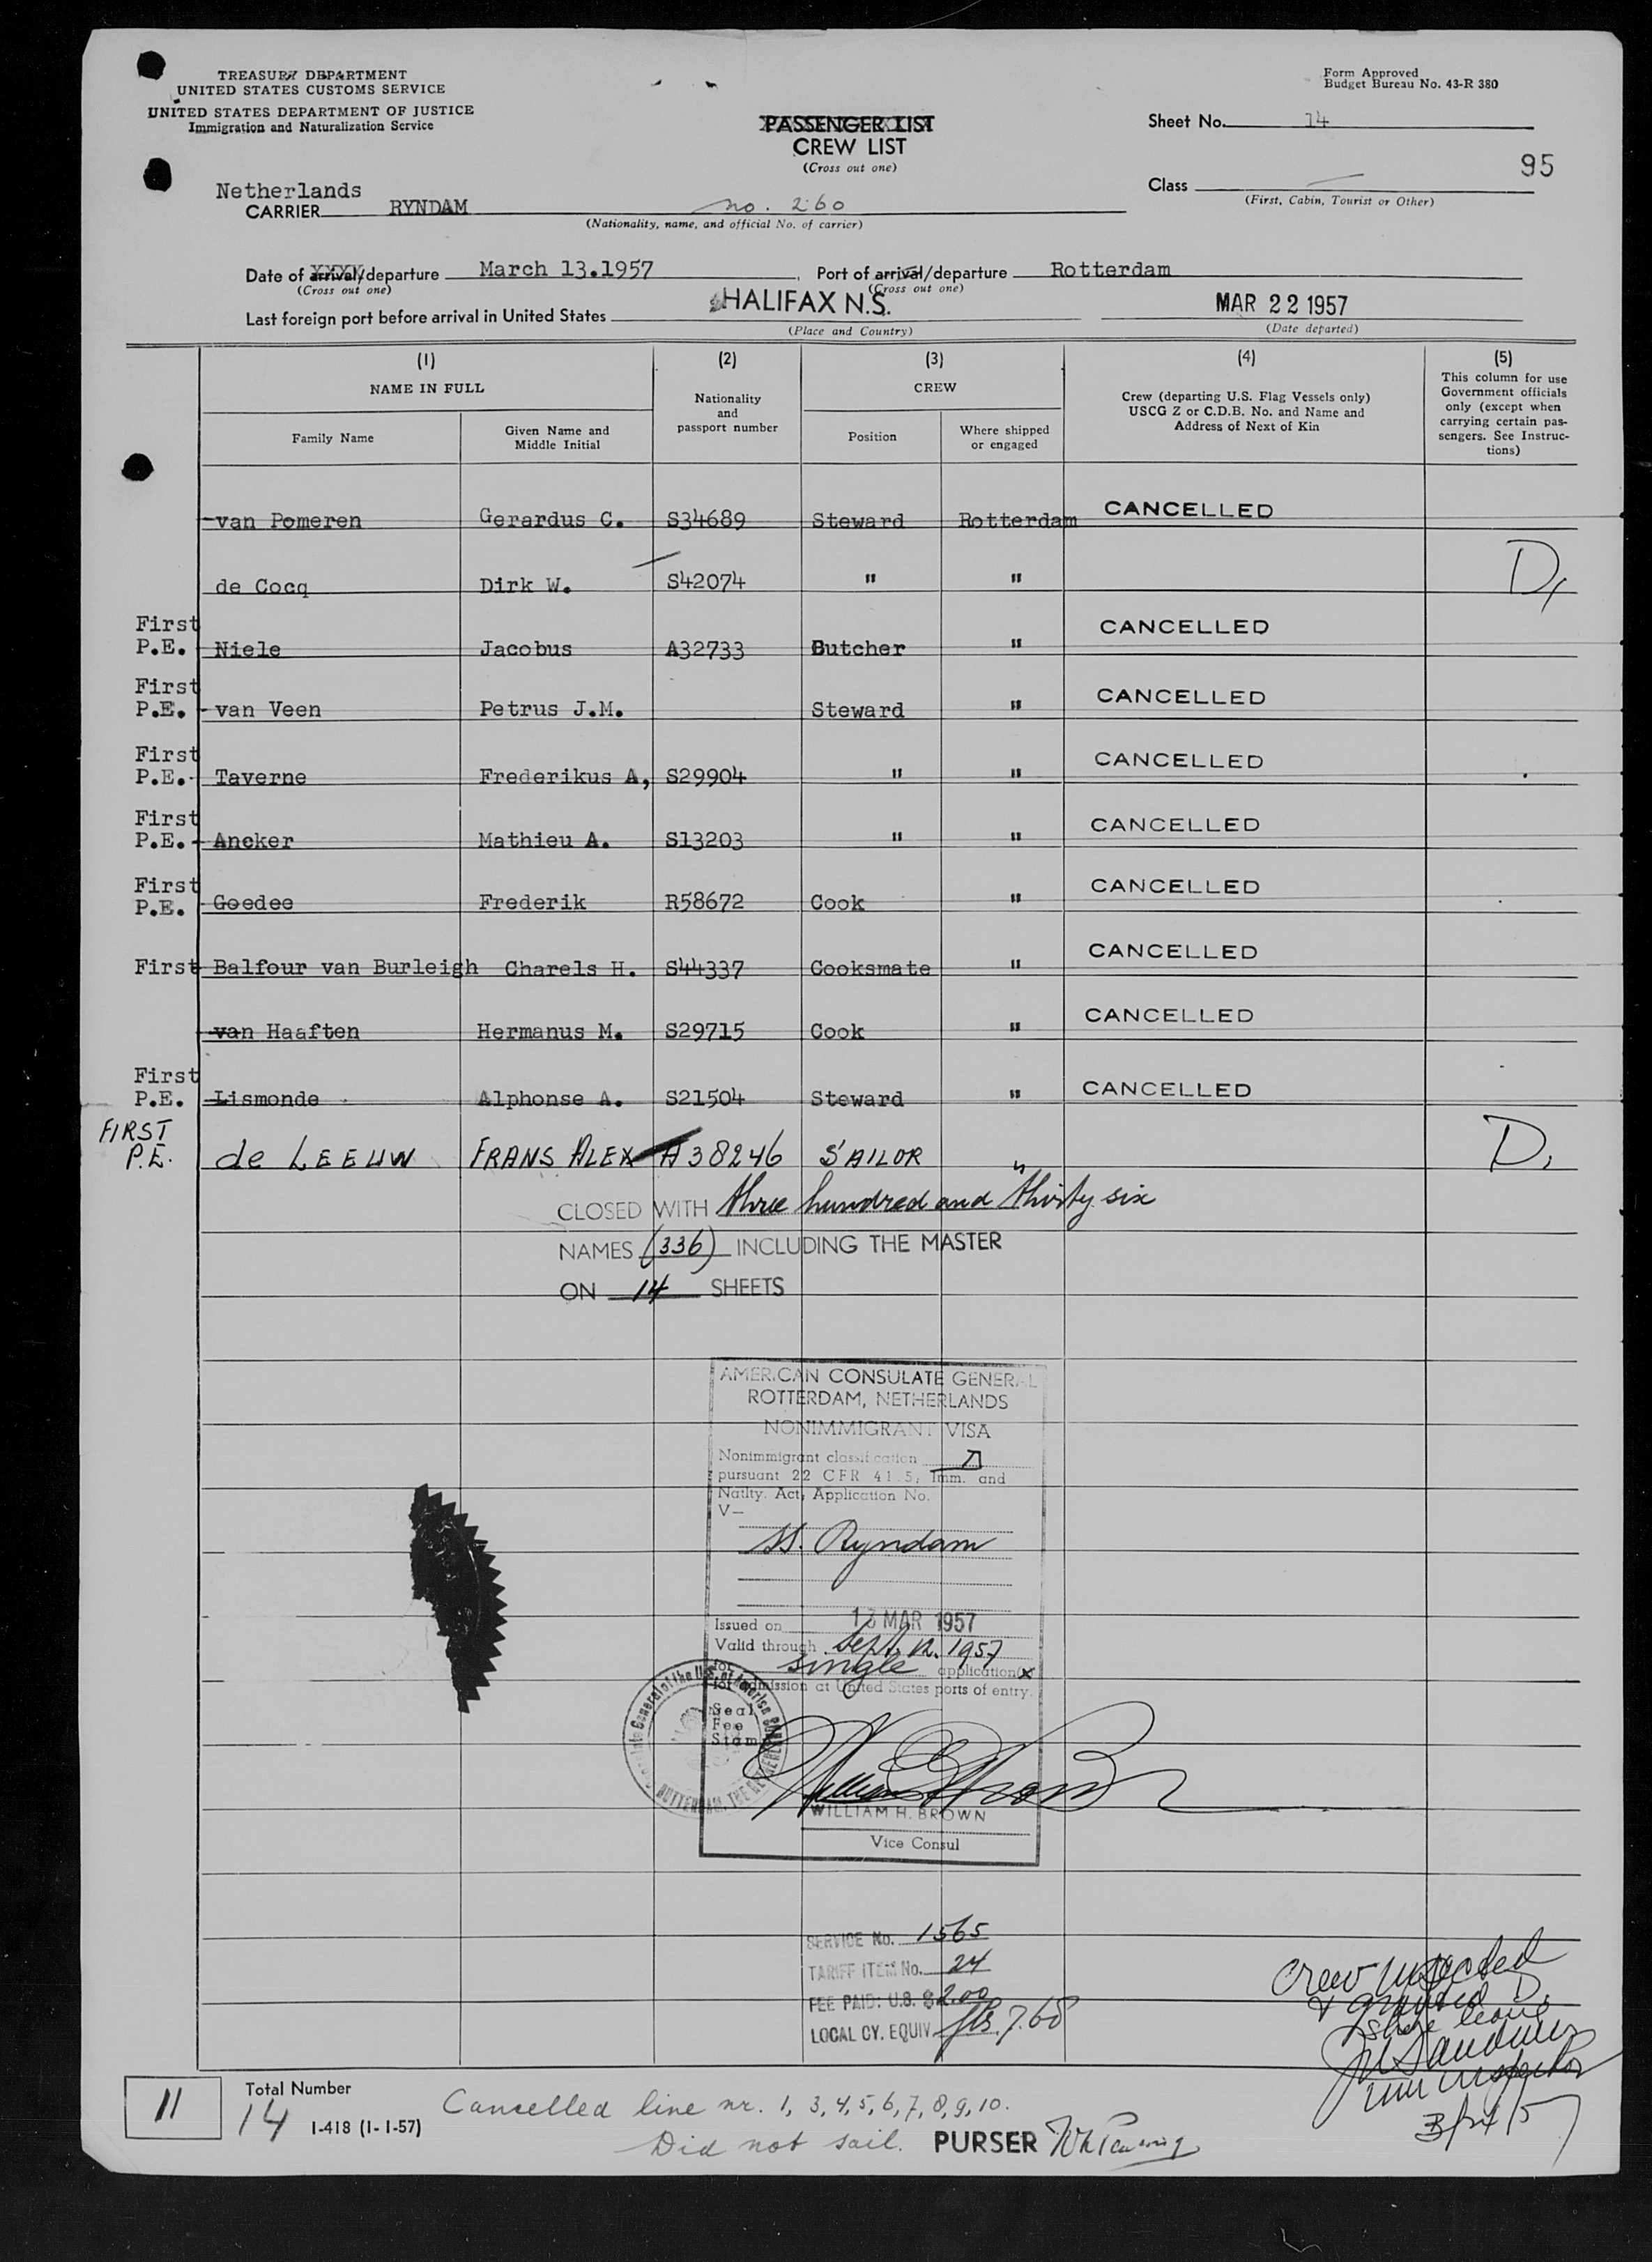 TREASURY DEPARTMENT
UNITED STATES CUSTOMS SERVICE
UNITED STATES DEPARTMENT OF JUSTICE
Immigration and Naturalization Service
Form Approved
Budget Bureau No. 43-R 380
PASSENGER LIST
CREW LIST
(Cross out one)
Sheet No. 14
95
Class
(First, Cabin, Tourist or Other)
Netherlands
CARRIER RYNDAM no. 260
(Nationality, name, and official No. of carrier)
Date of arrival/departure March 13.1957 Port of arrival/departure Rotterdam
(Cross out one) (Cross out one)
Last foreign port before arrival in United States HALIFAX N.S. MAR 22 1957
(Place and Country) (Date departed)
(1) (2) (3) (4) (5)
NAME IN FULL
Family Name
Given Name and
Middle Initial
Nationality
and
passport number
CREW
Position
Where shipped
or engaged
Crew (departing U.S. Flag Vessels only)
USCG Z or C.D.B. No. and Name and
Address of Next of Kin
This column for use
Government officials
only (except when
carrying certain pas-
sengers. See Instruc-
tions)
van Pomeren Gerardus C. S34689 Steward Rotterdam CANCELLED
de Cocq Dirk W. S42074 " " D,
First
P.E. Niele Jacobus A32733 Butcher " CANCELLED
First
P.E. van Veen Petrus J.M. Steward " CANCELLED
First
P.E. Taverne Frederikus A, S29904 " " CANCELLED
First
P.E. Ancker Mathieu A. S13203 " " CANCELLED
First
P.E. Goedee Frederik R58672 Cook " CANCELLED
First Balfour van Burleigh Charels H. S44337 Cooksmate " CANCELLED
van Haaften Hermanus M. S29715 Cook " CANCELLED
First
P.E. Lismonde Alphonse A. S21504 Steward " CANCELLED
FIRST
P.E. de LEEUW FRANS ALEX A38246 SAILOR " D,
CLOSED WITH three hundred and thirty six
NAMES (336) INCLUDING THE MASTER
ON 14 SHEETS
AMERICAN CONSULATE GENERAL
ROTTERDAM, NETHERLANDS
NONIMMIGRANT VISA
Nonimmigrant classification D
pursuant 22 CFR 41.5, Imm. and
Natlty. Act, Application No.
V—
SS. Ryndam
Issued on 13 MAR 1957
Valid through Sept. 12. 1957
for single application(s)
for admission at United States ports of entry.
Seal
Fee
Stamp
WILLIAM H. BROWN
Vice Consul
SERVICE No. 1565
TARIFF ITEM No. 24
FEE PAID: U.S. $2.00
LOCAL CY. EQUIV. fls. 7.60
Crew inspected
& granted D,
shore leave
Imm Inspector
11
Total Number
14 I-418 (1-1-57)
Cancelled line nr. 1, 3, 4, 5, 6, 7, 8, 9, 10.
Did not sail. PURSER